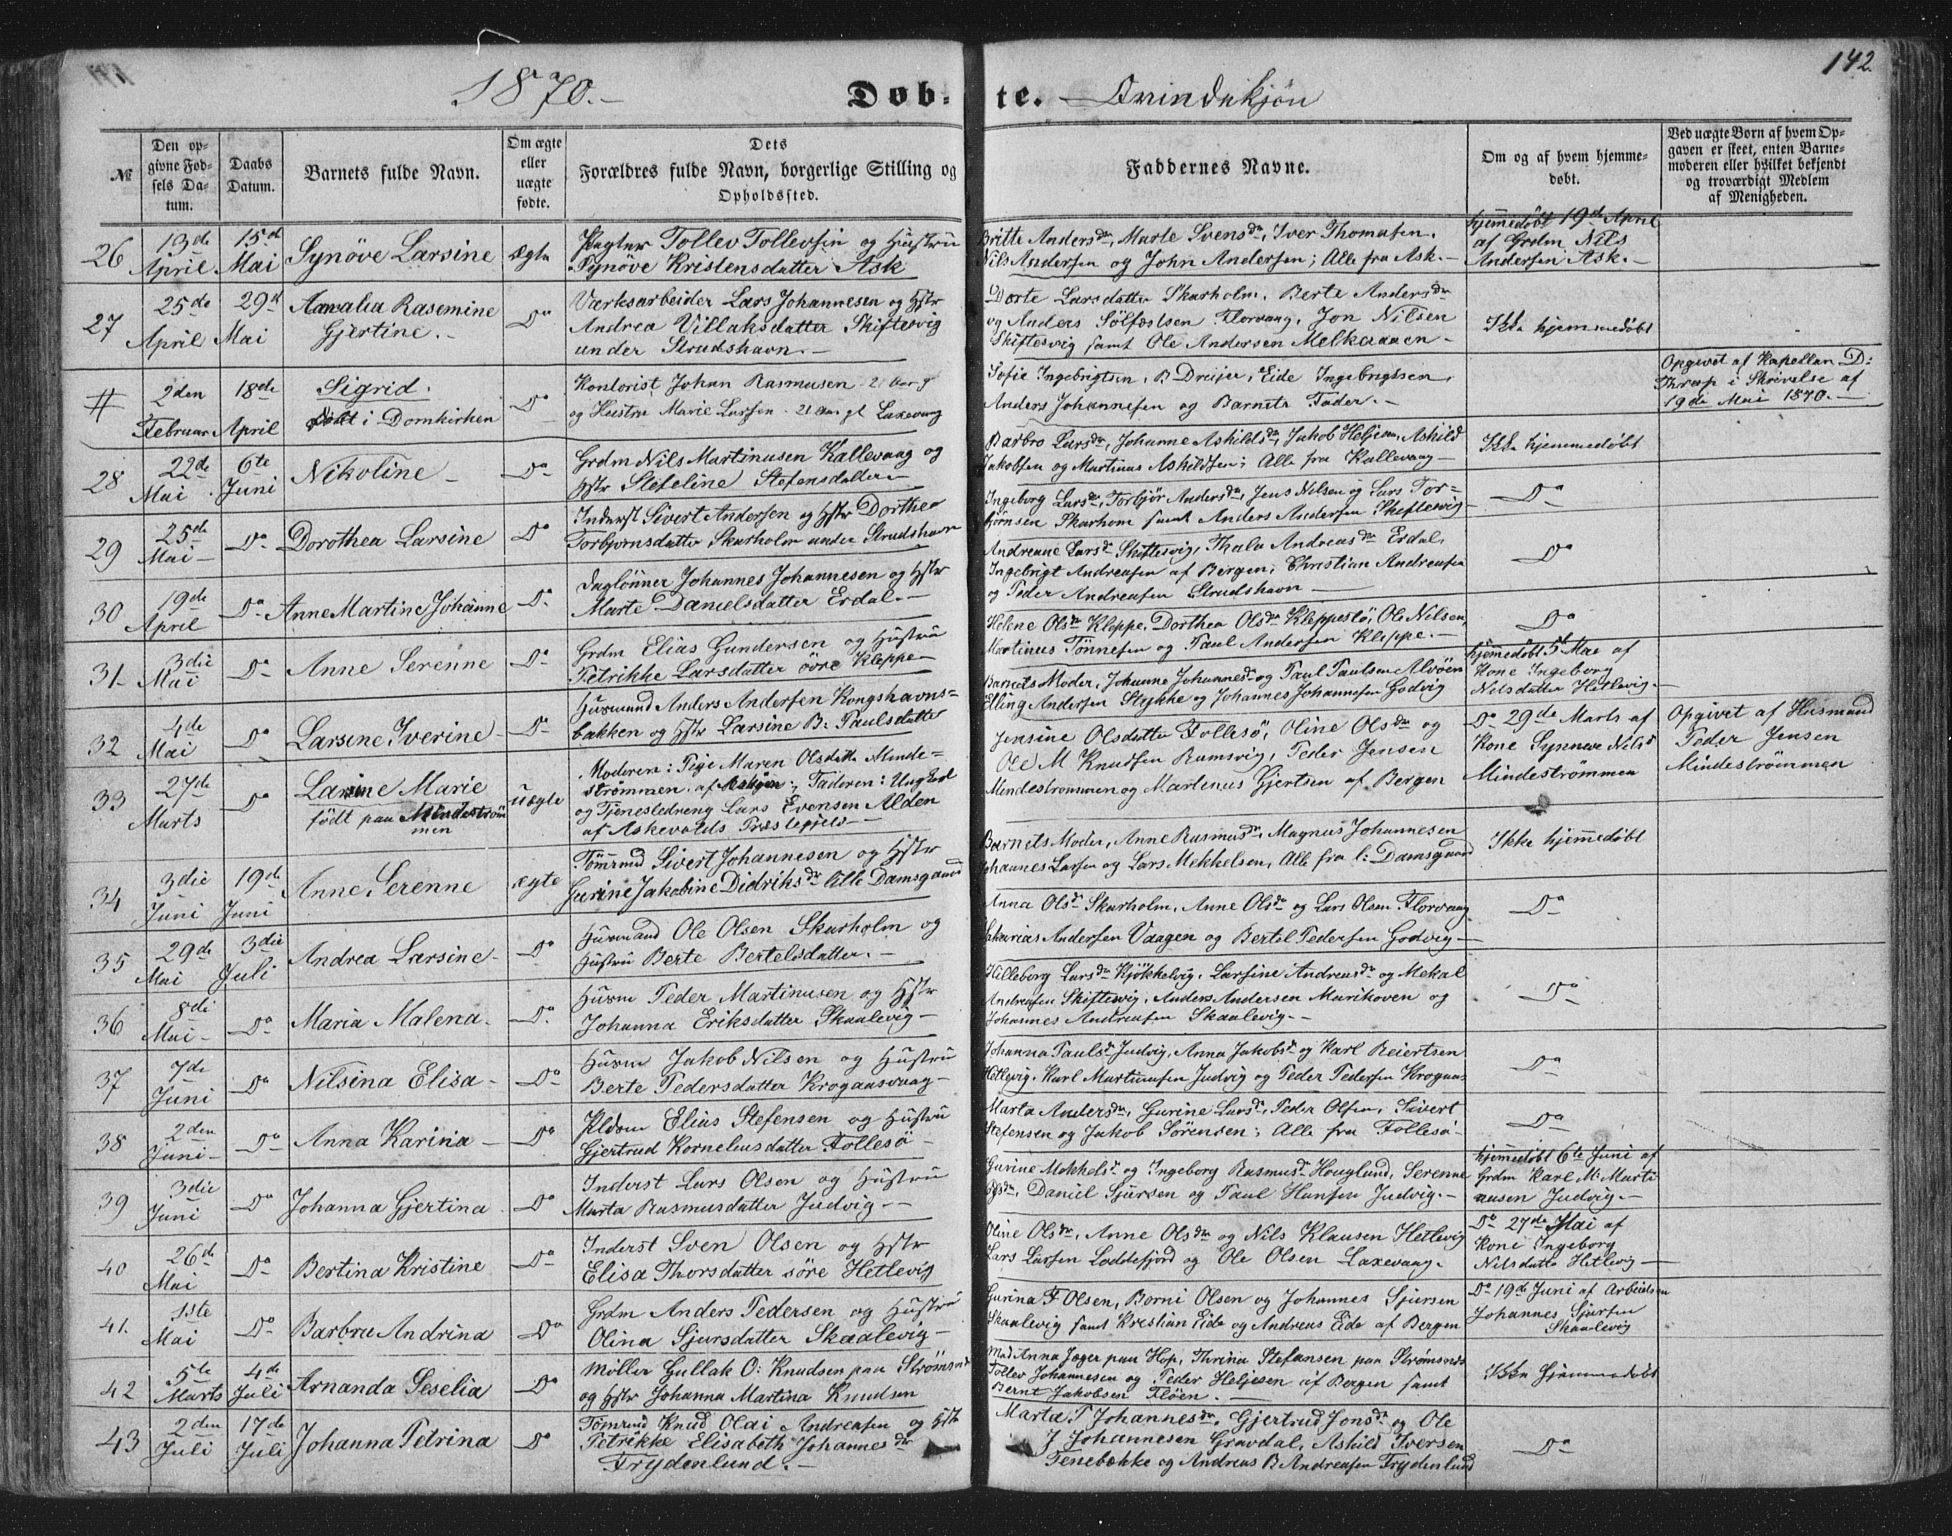 142
1870.-
Døb-te.
Qvindekjøn
№
Den opgivne Fødsels Datum.
Daabs Datum.
Barnets fulde Navn.
Om ægte eller uægte fødte.
Dets Forældres fulde Navn, borgerlige Stilling og Opholdssted.
Faddernes Navne.
Om og af hvem hjemmedøbt.
Ved uægte Børn af hvem Opgaven er skeet, enten Barnemoderen eller hvilket bekjendt og troværdigt Medlem af Menigheden.
26 13de April 15de Mai Synöve Larsine ægte
Tollev Tollevsen og Hustru
Synöve Kristensdatter Ask
Britte Andersdr, Marte Svensdr, Iver Thomasen,
Nils Andersen og John Andersen; Alle fra Ask.-
hjemmedöbt 19de April
af Grdm Nils
Andersen Ask.-
27 25de April 29d Mai Amalia Rasmine
Gjertine.- Do
Værksarbeider Lars Johannesen og Hstr
Andrea Villaksdatter Skiftesvig
under Strudshavn.-
Dorte Larsdatter Skarholm, Berte Andersdr
og Anders Sölfæstsen Florvaag, Jon Nilsen
Skiftesvig samt Ole Andersen Melkeraaen-
Ikke hjemmedöbt
# 2den Februar 18de April Sigrid.
Döbt i Domkirken Do
Kontorist Johan Rasmusen 21 Aar gl
og Hustru Marie Larsen 21 Aar gl Laxevaag
Sofie Ingebrigtsen, B Dreijer, Eide Ingebrigtsen,
Anders Johannesen og Barnets Fader.-
Opgivet af Kapellan D:
Thrap i Skrivelse af
19de Mai 1870.-
28 22de Mai 6te Juni Nikoline Do
Grdm Nils Martinusen Kallevaag og
Hstr Stefeline Stefensdatter-
Barbro Larsdr, Johanne Askildsdr, Jakob Heljesen, Askild
Jakobsen og Martinus Askildsen; Alle fra Kallevaag-
Ikke hjemmedöbt
29 25de Mai Do Dorothea Larsine Do
Inderst Sivert Andersen og Hstr Dorthea
Torbjornsdatter Skarholm under Strudshavn
Ingeborg Larsdr, Torbjör Andersdr, Jens Nilsen og Lars Tor=
björnsen Skarhom samt Anders Andersen Skiftesvig-
Do
30 19de April Do Anne Martine Johanne Do
Daglönner Johannes Johannesen og Hstr
Marte Danielsdatter Erdal.-
Andreane Larsd Skiftesvig, Thala Andreasdr Erdal,
Ingebrigt Andreasen af Bergen, Christian Andreasen
og Peder Andreasen Strudshavn
Do
31 3die Mai Do Anne Serenne Do
Grdm Elias Gundersen og Hustru
Petrikke Larsdatter övre Kleppe-
Helene Olsdr Kleppe, Dorthea Olsdr Kleppestö, Ole Nilsen,
Martinus Tönnesen og Paul Andersen Kleppe.-
Do
32 4de Mai Do Larsine Iverine Do
Husmand Anders Andersen Kongshavns=
bakken og Hstr Larsine B: Paulsdatter
Barnets Moder, Johanne Johannesdr og Paul Paulsen Alvöen
Elling Andersen Stykke og Johannes Johannesen Godvig
hjemmedöbt 5d Mai af
Kone Ingeborg
Nilsdatter Hetlevig-
33 27de Marts Do Larsine Marie
födt paa Mindeströmmen uægte
Moderen: Pige Maren Olsdatter Minde=
strömmen af Asköen; Faderen: Ungkarl
og Tjenestedreng Lars Evensen Alden
af Askevolds Præstegjeld-
Jensine Olsdatter Follesö, Oline Olsdr og
Ole M Knudsen Ramsvig, Peder Jensen
Mindestrommen og Martenus Gjertsen af Bergen
Do 29de Marts af
Kone Synneve Nilsd
Mindeströmmen
Opgivet af Husmand
Peder Jensen
Mindeströmmen
34 3die Juni 19de Juni Anne Serenne ægte
Tömmd Sivert Johannesen og Hstr
Gurine Jakobine Didriksdr lille Damsgaard
Barnets Moder, Anne Rasmusdr, Magnus Johannesen
Johannes Larsen og Lars Mekkelsen, Alle fra l: Damsgaard
Ikke hjemmedöbt
35 29de Mai 3die Juli Andrea Larsine Do
Husmand Ole Olsen Skarholm og
Hustru Berte Bertelsdatter.-
Anna Olsdr Skarholm, Anne Olsdr og Lars Olsen Florvaag
Sakarias Andersen Vaagen og Bertel Pedersen Godvig-
Do
36 8de Mai Do Maria Malena Do
Husm Peder Martinusen og Hstr
Johanna Eriksdatter Skaalevig-
Hilleborg Larsdr Kjökkelvig, Larsine Andreasdr og Mekal
Andreasen Skiftesvig, Anders Andersen Marikoven og
Johannes Andreasen Skaalevig.-
Do
37 7de Juni Do Nilsina Elisa Do
Husm Jakob Nilsen og Hustru
Berte Pedersdatter Krogaasvaag-
Johanna Paulsd Judvig, Anna Jakobsd og Karl Reiertsen
Hetlevig, Karl Martinusen Judvig og Peder Pedersen Krogaas-
Do
38 2den Juni Do Anna Karina Do
Pldsm Elias Stefensen og Hustru
Gjertrud Korneliusdatter Follesö-
Marta Andersdr, Gurine Larsd, Peder Olsen, Sivert
Stefensen og Jakob Sörensen; Alle fra Follesö-
Do
39 3die Juni Do Johanna Gjertina Do
Inderst Lars Olsen og Hustru
Marta Rasmusdatter Judvig-
Gurine Mekkelsd og Ingeborg Rasmusd Hougland, Serenne
Olsdr, Daniel Sjursen og Paul Hansen Judvig.-
hjemmedöbt 6te Juni af
Grdm Karl M: Marti
nusen Judvig.-
40 26d Mai Do Bertina Kristine Do
Inderst Sven Olsen og Hstr
Elisa Thorsdatter söre Hetlevig
Oline Olsdr, Anne Olsdr og Nils Klausen Hetlevig
Lars Larsen Loddefjord og Ole Olsen Laxevaag.
Do 27de Mai af
Kone Ingeborg
Nilsdatter Hetlevig-
41. 1ste Mai Do Barbra Andrina Do
Grdm Anders Pedersen og Hustru
Olina Sjursdatter Skaalevig-
Gurina F Olsen, Borni Olsen og Johannes Sjursen
Skaalevig samt Kristian Eide og Andreas Eide af Bergen
Do 19de Juni af Arbeidsm
Johannes Sjursen
Skaalevig
42 5te Marts 4de Juli Arnanda Seselia Do
Möller Gullak O: Knudsen paa Strömsnes
og Hstr Johanna Martina Knudsen
Mad Anna Jæger paa Hop, Thrina Stefansen paa Strömsnes
Tollev Johannesen og Peder Heljesen af Bergen samt
Bernt Jakobsen Flöen.-
Ikke hjemmedöbt
43 2den Juli 17de Juli Johanna Petrina Do
Tömmd Knud Olai Andreasen og Hstr
Petrikke Elisabeth Johannesdr
Frydenlund.-
Marta P Johannesdr, Gjertrud Jonsdr og Ole
J Johannesen Gravdal, Askild Iversen
Tenebække og Andreas B Andreasen Frydenlund
Do